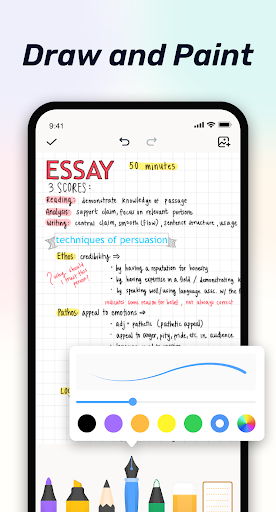 Draw and Paint
9:41
ESSAY
50 minutes
3 SCORES:
Reading: demonstrate knowledge of passage
Analysis: support claim, focus on relevant portions
Writing: central claim, smooth (flow), sentence structure, usage
techniques of persuasion
Ethos: credibility ⇒
? why should I trust this person?
· by having a reputation for honesty
· by having expertise in a field / demonstrating k
· by speaking well/using language assc. w/ the
indicates some reason for belief, not always correct
Pathos: appeal to emotions ⇒
· adj - pathetic (pathetic appeal)
· appeal to anger, pity, pride, etc. in audience